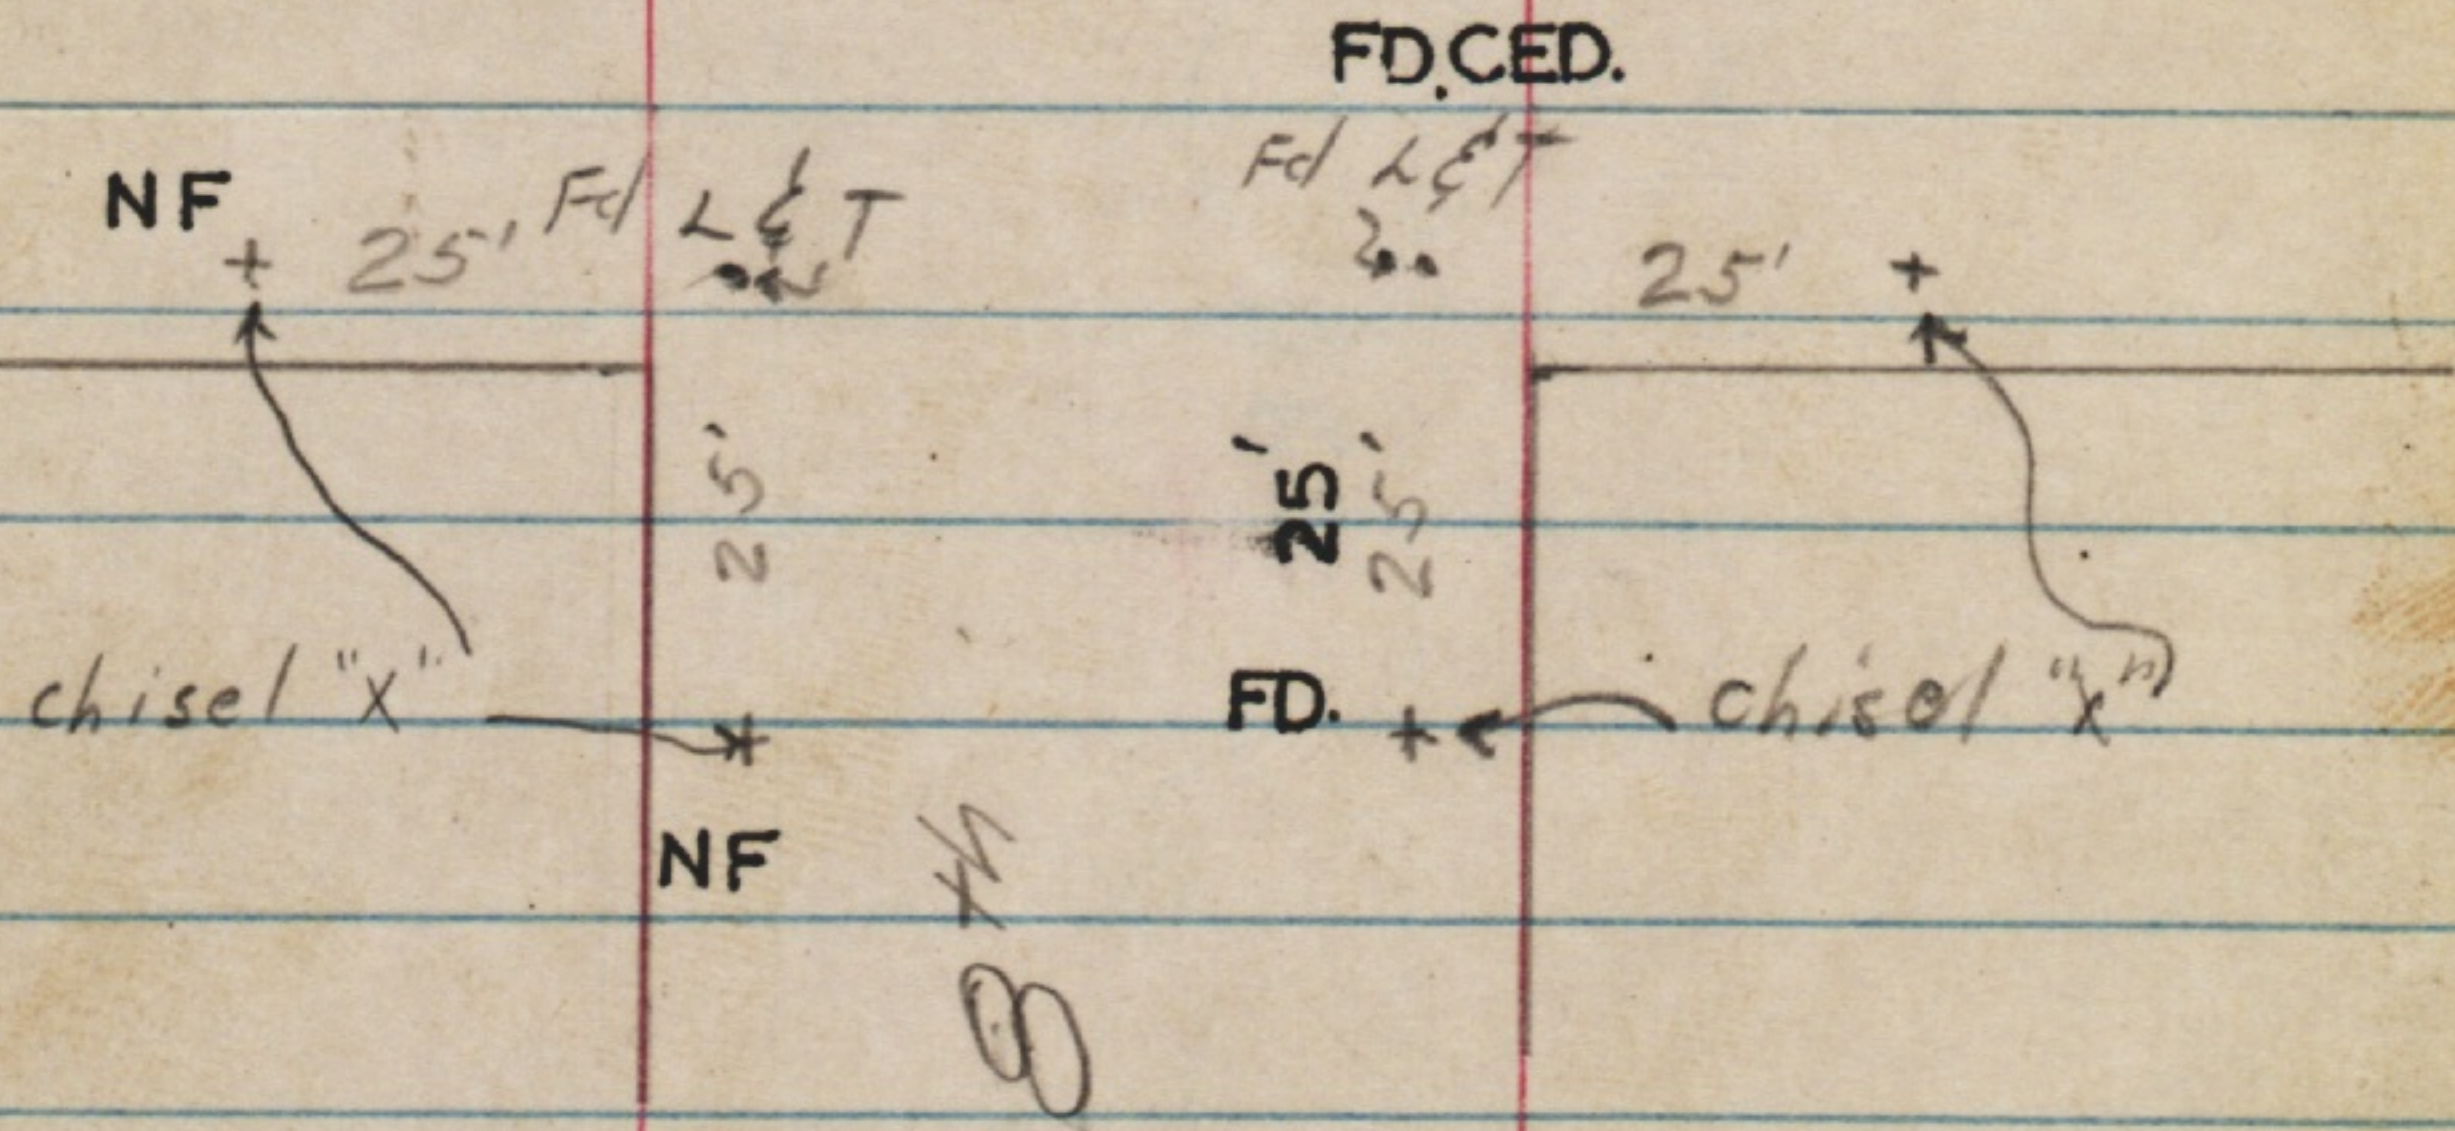 FD. CED.
NF
25'
Fd L & T
Fd L & T
25'
25'
25'
25'
chisel "x"
FD.
chisel "x"
NF
8th